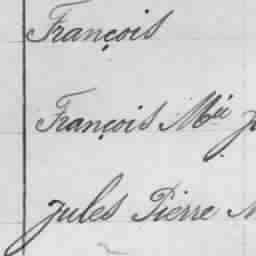 François
François Mie
Jules Pierre